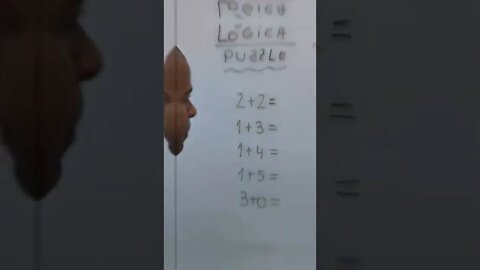 LOGICA
LOGICA
PUZZLE
2+2=
1+3=
1+4=
1+5=
3+0=